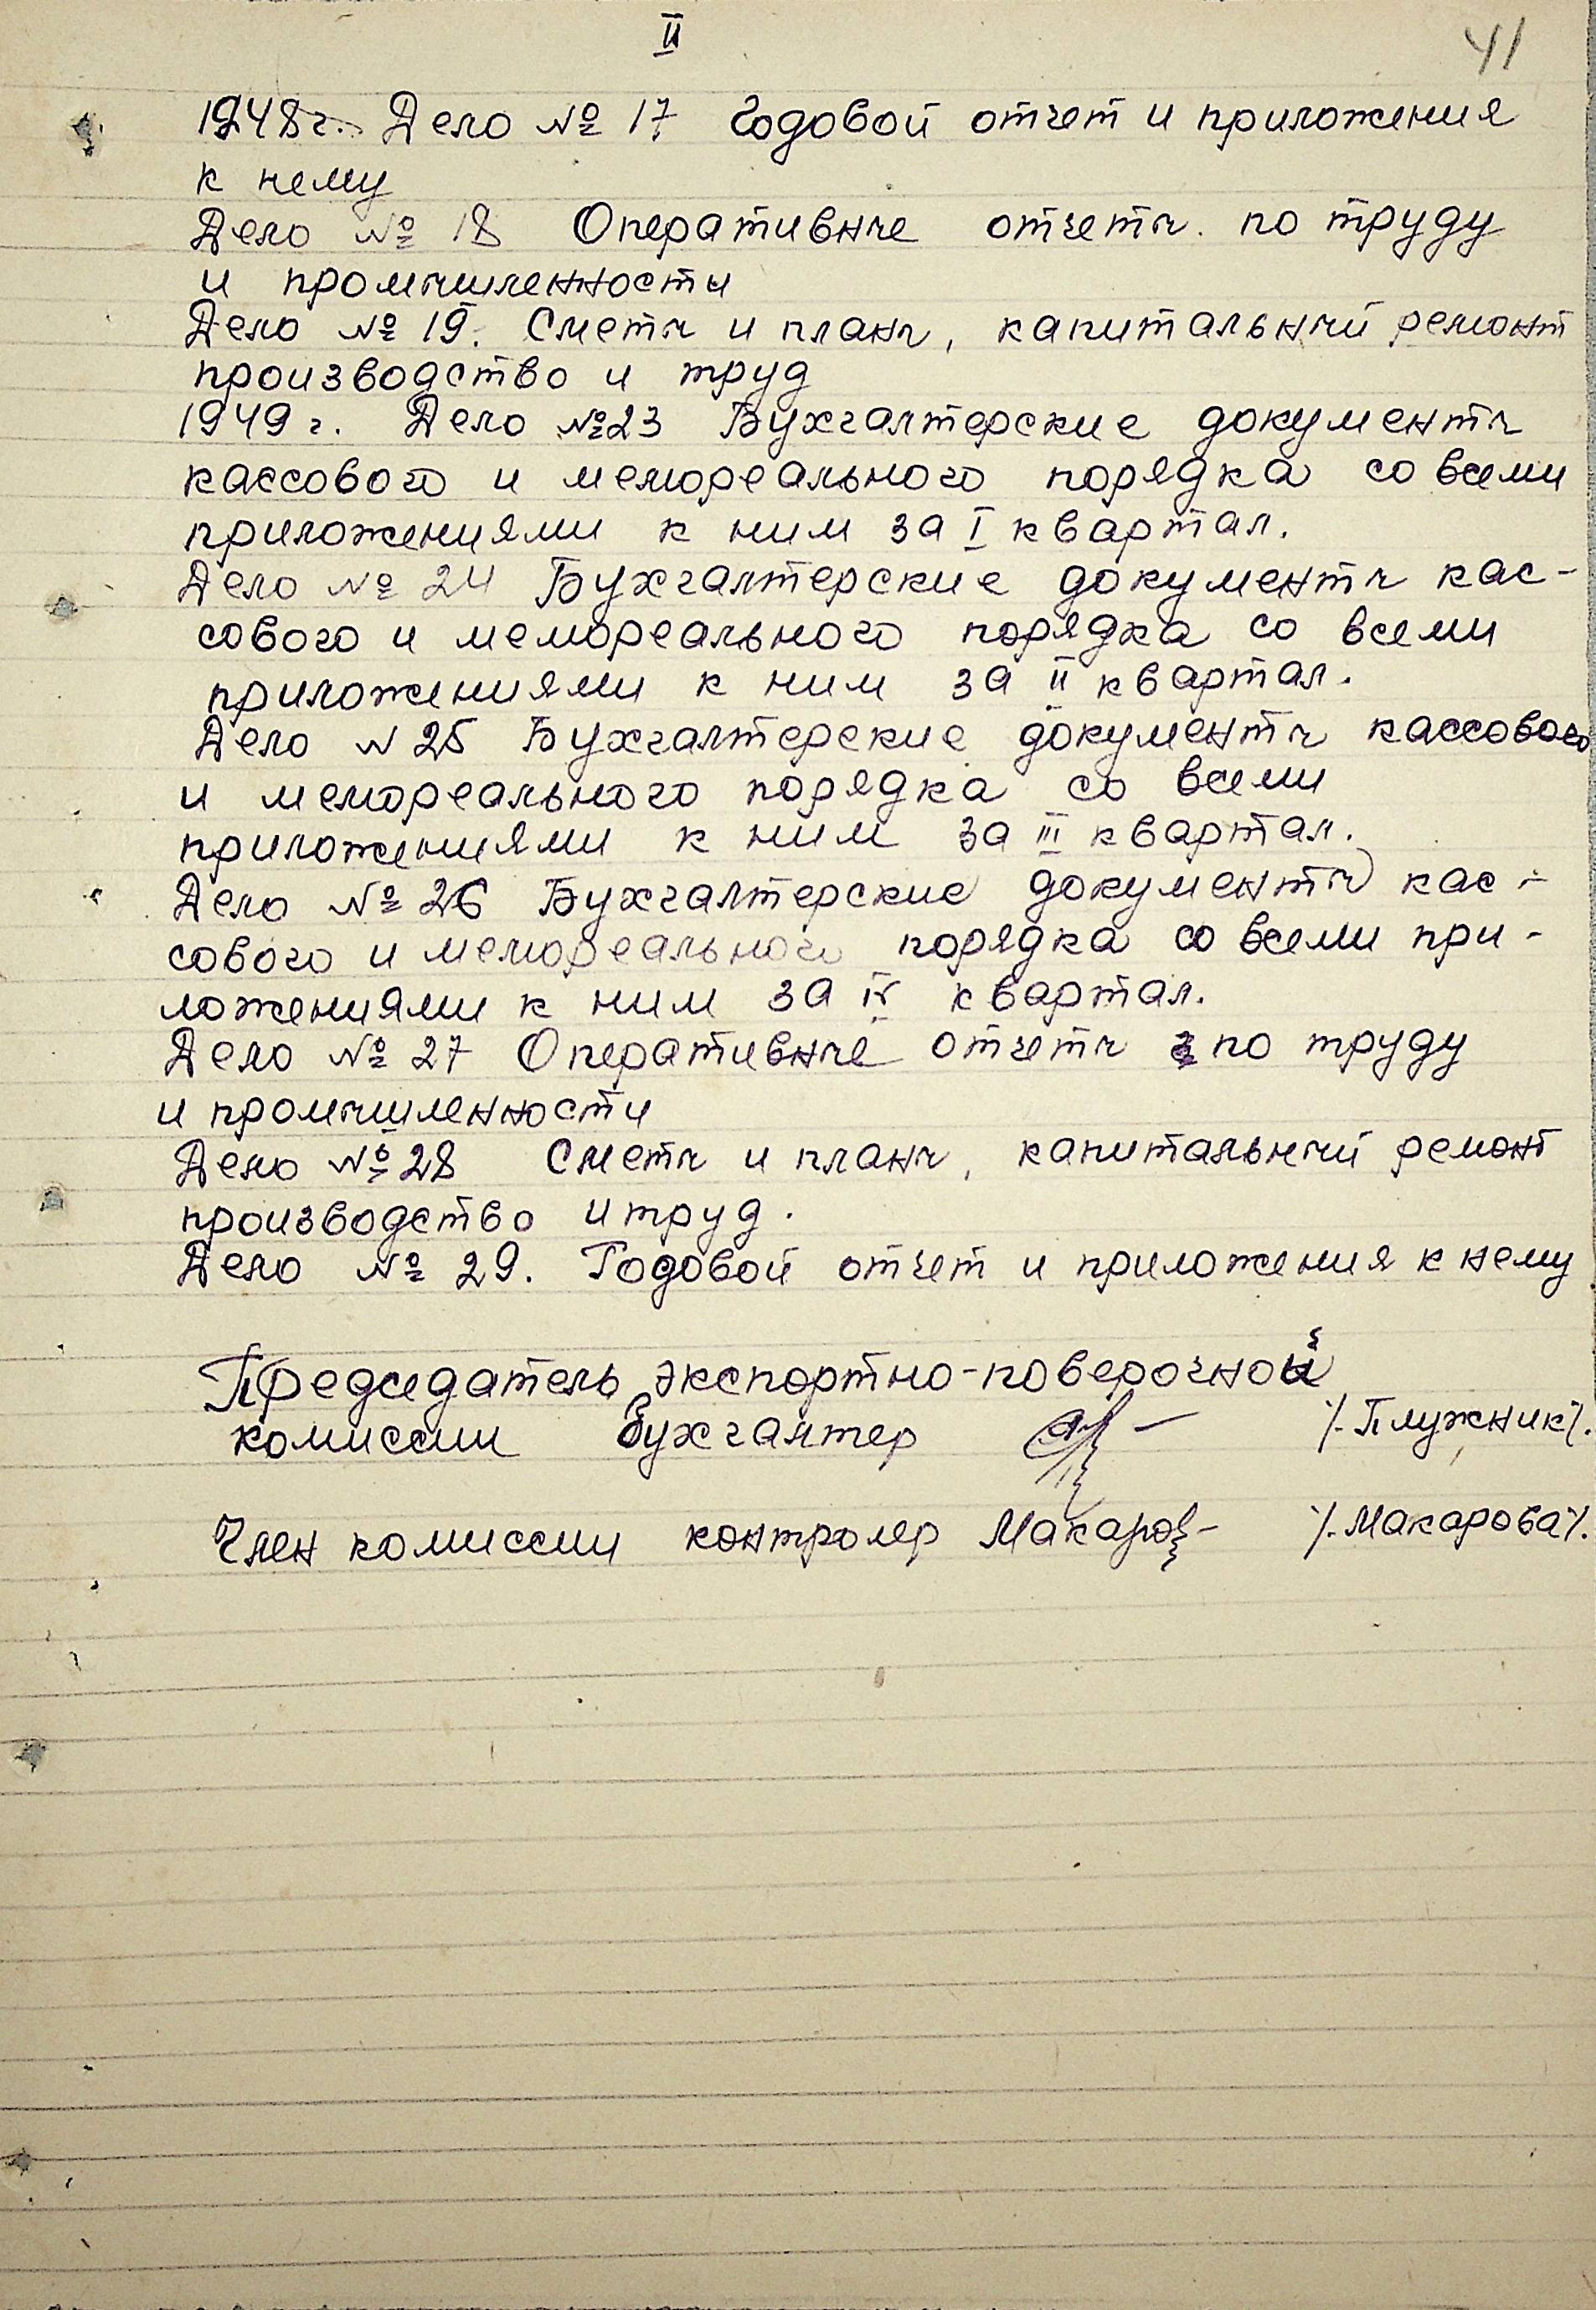 II
41
1948г. Дело № 17 Годовой отчет и приложения
к нему
Дело № 18 Оперативные отчеты. по труду
и промышленности
Дело № 19. Сметы и планы, капитальный ремонт
производство и труд
1949 г. Дело №23 Бухгалтерские документы
кассового и мемореального порядка со всеми
приложениями к ним за I квартал.
Дело № 24 Бухгалтерские документы кас-
сового и мемореального порядка со всеми
приложениями к ним за II квартал.
Дело N 25 Бухгалтерские документы кассового
и мемореального порядка со всеми
приложениями к ним за III квартал.
Дело № 26 Бухгалтерские документы кас-
сового и мемореального порядка со всеми при-
ложениями к ним за IV квартал.
Дело № 27 Оперативные отчеты по труду
и промышленности
Дело № 28 Сметы и планы, капитальный ремонт
производство и труд.
Дело № 29. Годовой отчет и приложения к нему
Председатель экспортно-поверочной
комиссии Бухгалтер /.Плужник/.
Член комиссии контролер Макаров- /.Макарова/.